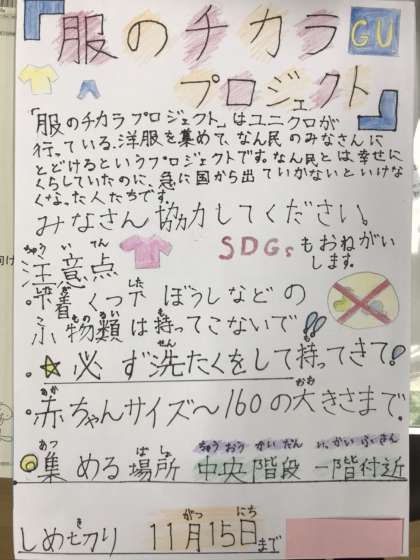 『服のチカラ
GU
プロジェクト』
「服のチカラプロジェクト」はユニクロが
行っている、洋服を集めて、なん民のみなさんに
とどけるというプロジェクトです。なん民とは、幸せに
くらしていたのに、急に国から出ていかないといけな
くなった人たちです。
みなさん協力してください。
SDGsもおねがい
します。
ちゅういてん
注意点
・下着くつ下ぼうしなどの
ふ物類は持ってこないで!!
・☆必ず洗たくをして持ってきて!!
・赤ちゃんサイズ～160の大きさまで。
◎集める場所 中央階段 一階付近
しめ切り 11月15日まで